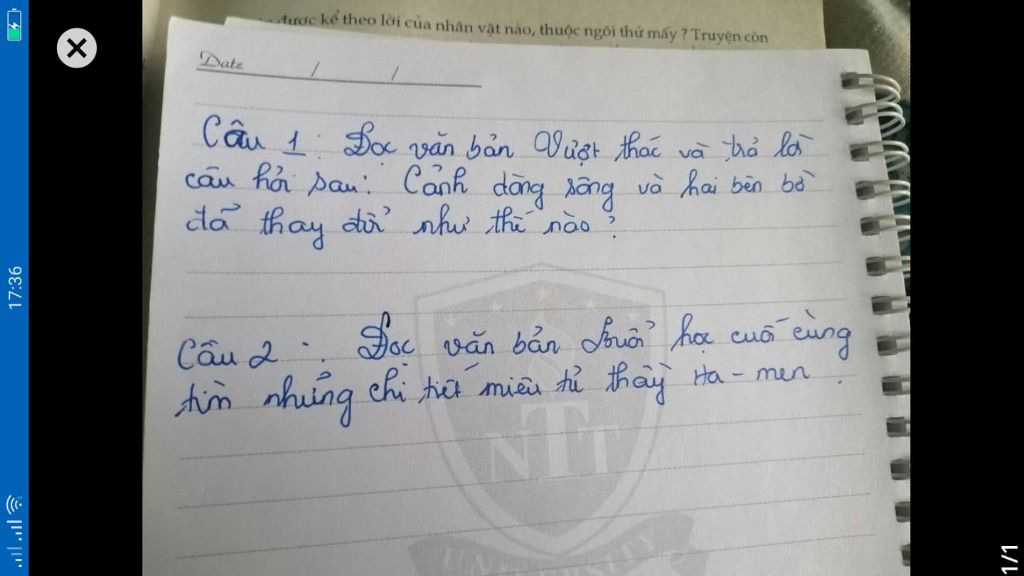 được kể theo lời của nhân vật nào, thuộc ngôi thứ mấy ? Truyện còn
Date / /
Câu 1 : Đọc văn bản Vượt thác và trả lời
câu hỏi sau: Cảnh dòng sông và hai bên bờ
đã thay đổi như thế nào ?
Câu 2 : Đọc văn bản Buổi học cuối cùng
tìm những chi tiết miêu tả thầy Ha-men .
NTT
UNIVERSITY
17:36
1/1